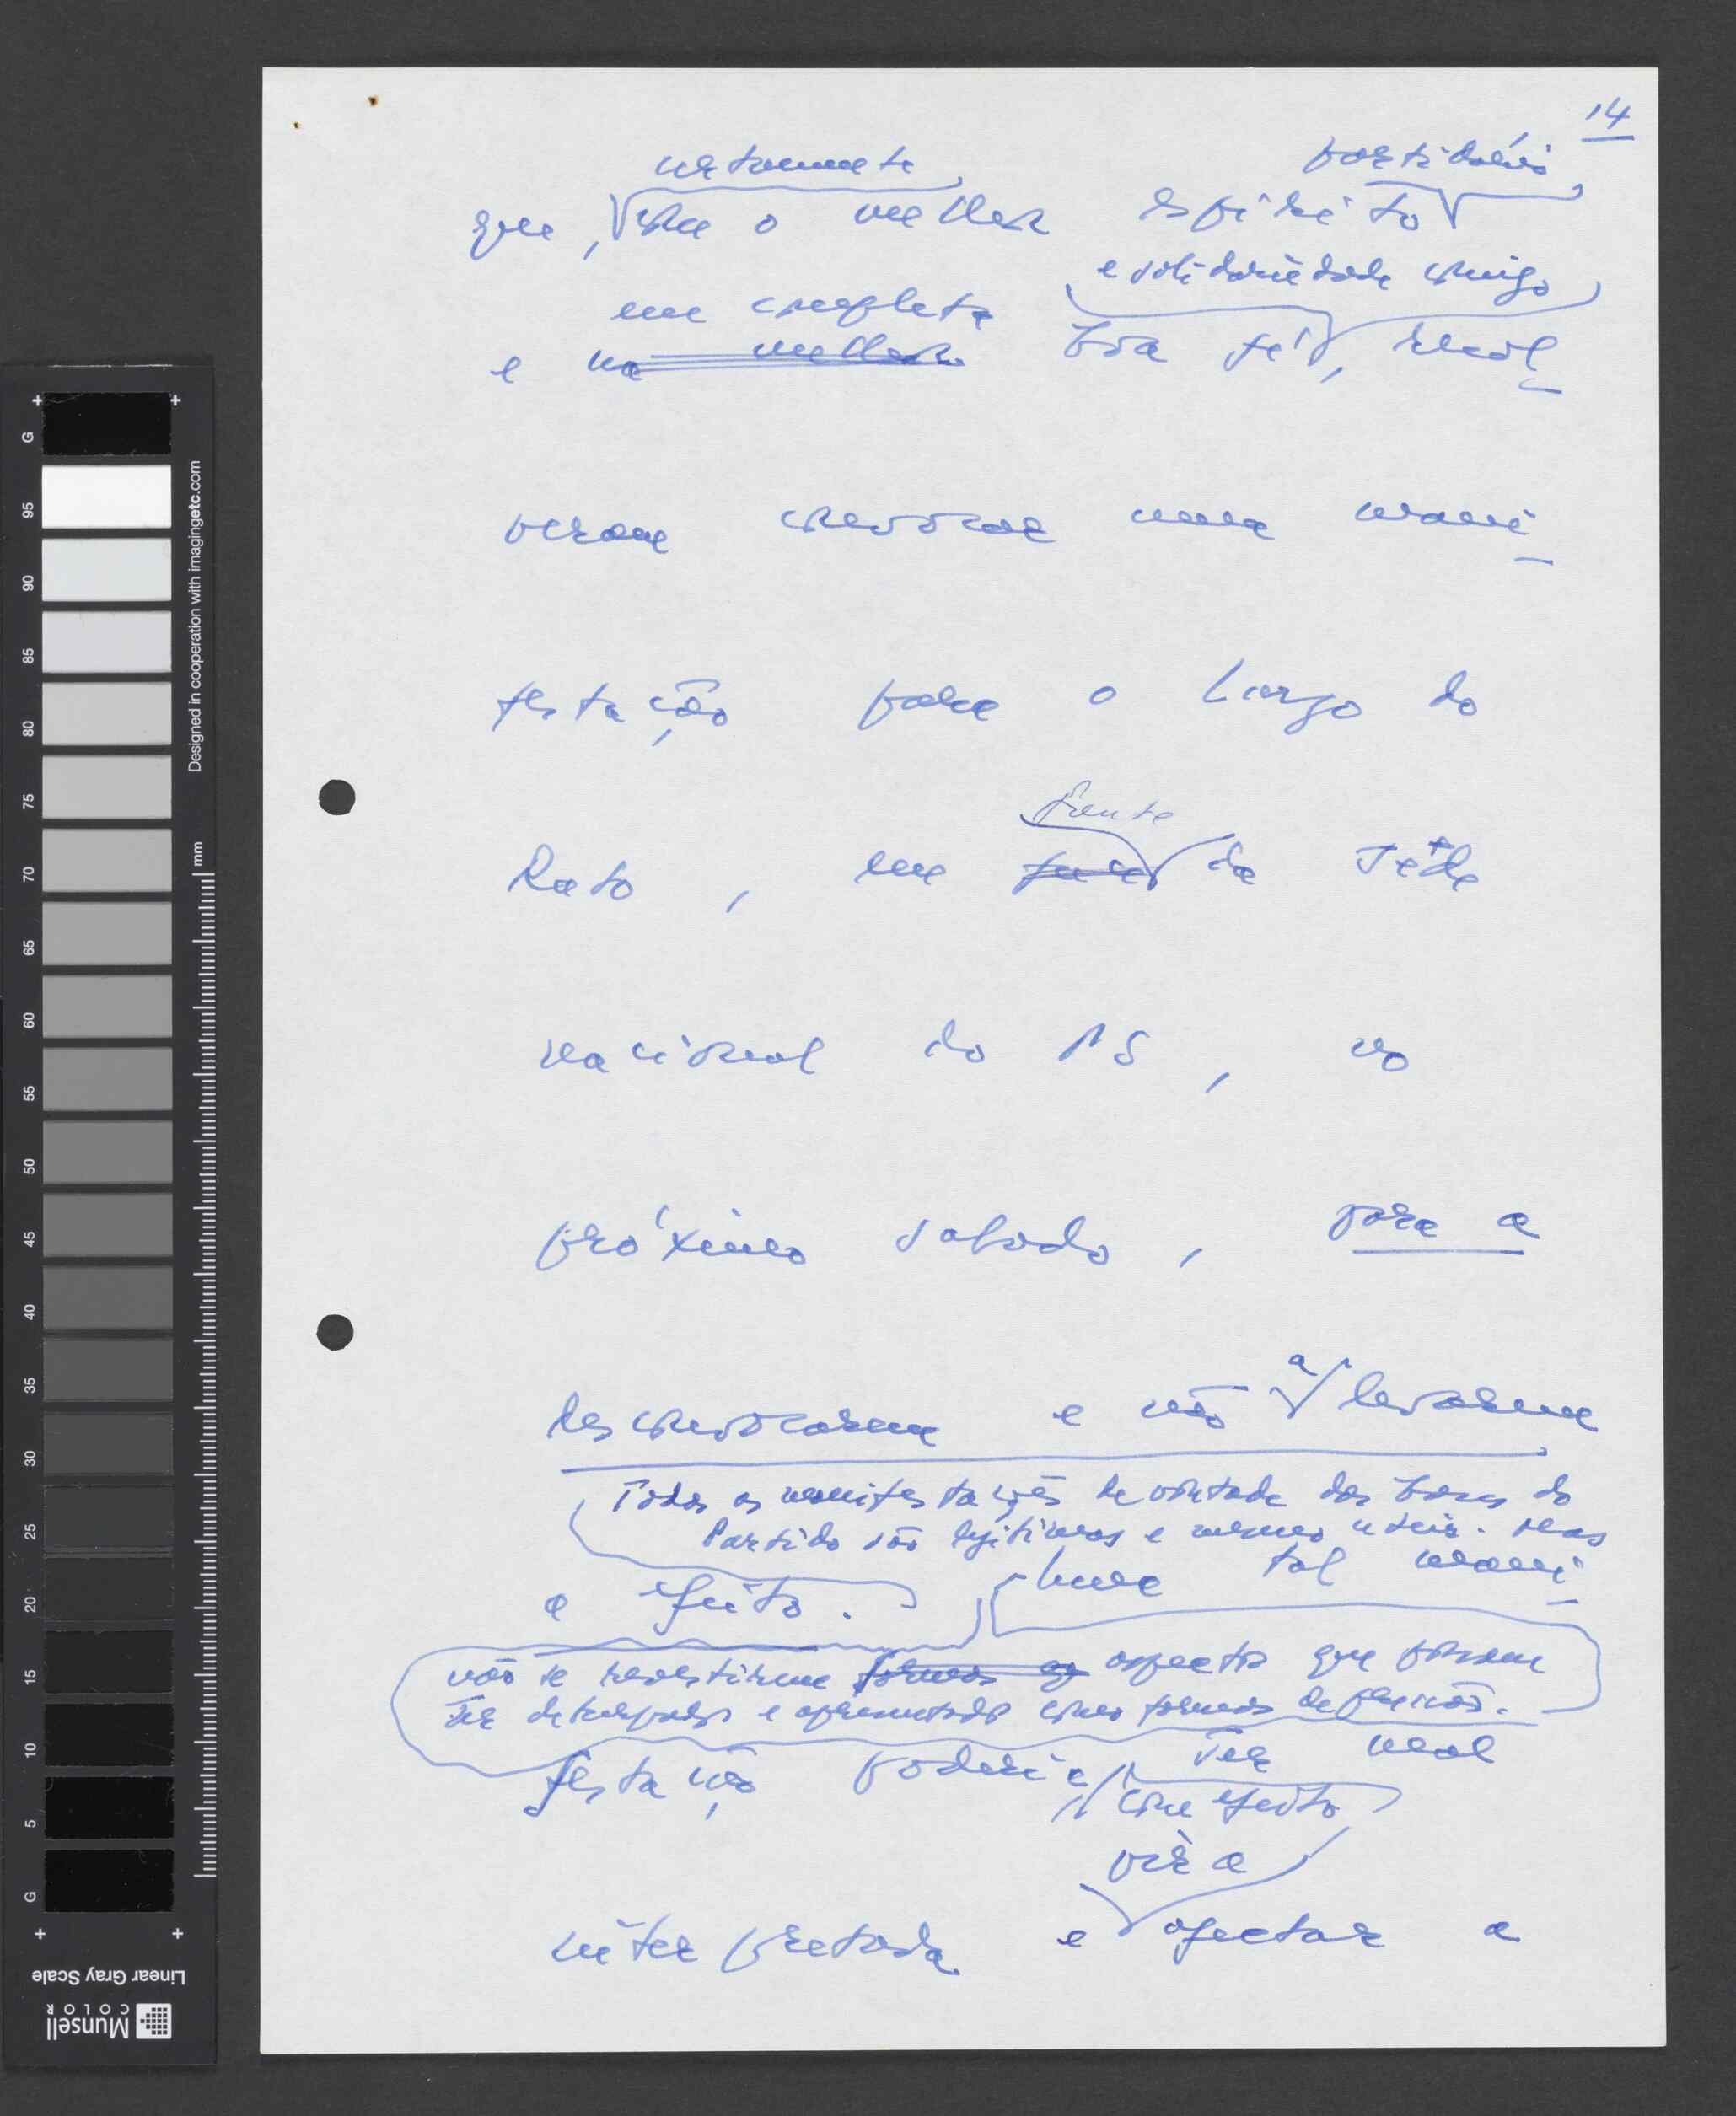 14
certamente
partidário
que, com o melhor espírito
e solidariedade comigo
em completa
e na melhor boa fé, resol
veram convocar uma mani
festação para o Largo do
frente
Rato, em da Séde
nacional do PS, no
próximo sabado, para a
desconvocarem e não a levarem
Todas as manifestações de vontade das bases do
Partido são legítimas e mesmo uteis. Mas
a efeito. Uma tal mani
não se revestirem formas aspectos que possam
ser deturpados e apresentados como formas de pressão.
festação poderia, ser mal
com efeito
vir a
interpretada e afectar a
Designed in cooperation with imagingetc.com
mm
G
95
90
85
80
75
70
65
60
55
50
45
40
35
30
25
20
15
10
5
G
Linear Gray Scale
Munsell
COLOR